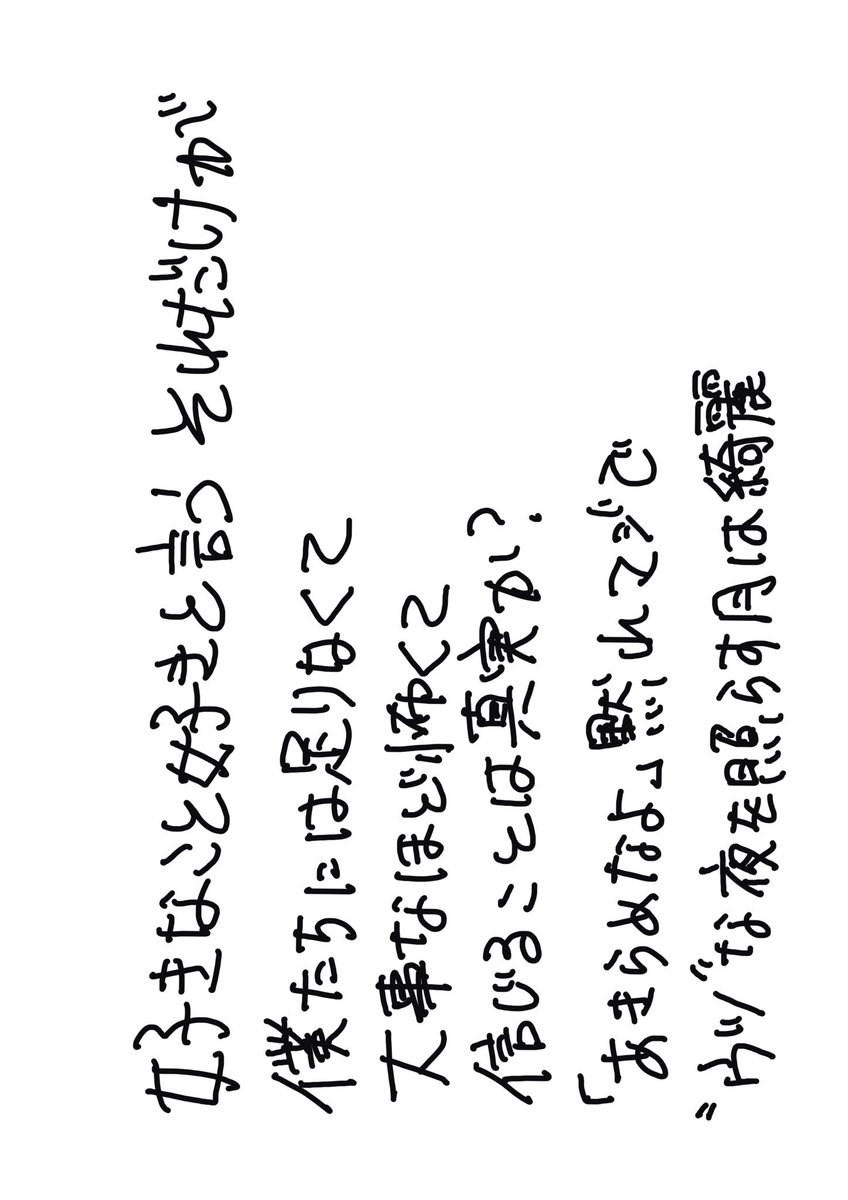 好きなこと好きと言う それだけが
僕たちには足りなくて
大事なほど怖くて
信じることは真実かい?
「あきらめなよ」黙れマジで
"ウツ"な夜を照らす月は綺麗